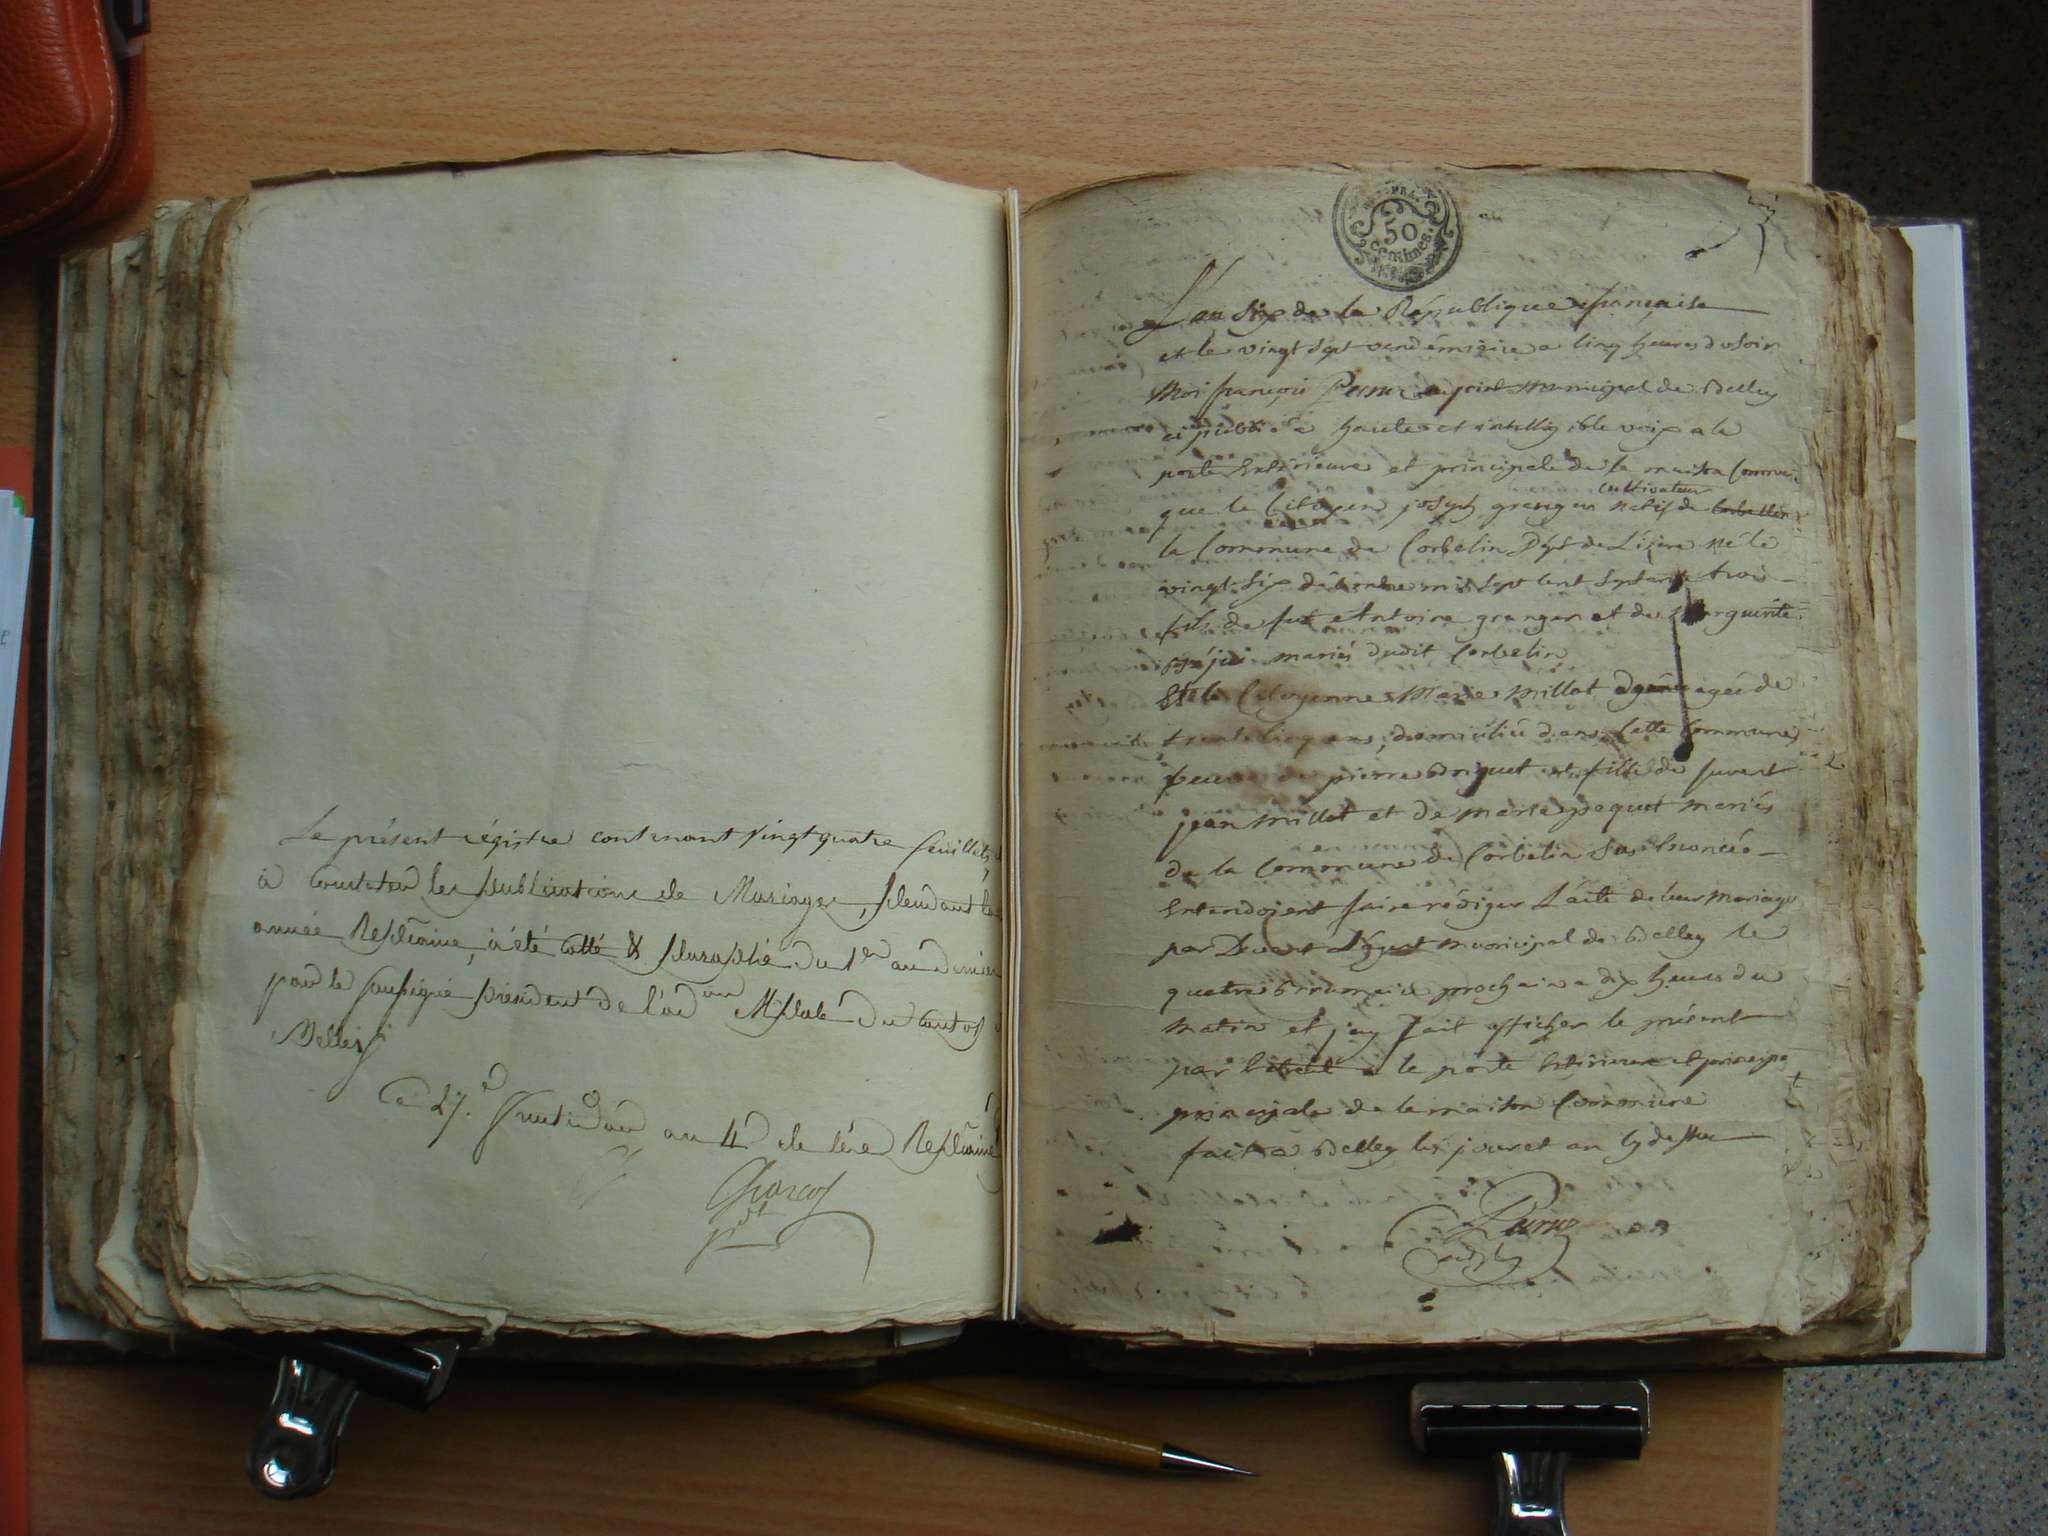 Le présent régistre contenant vingt quatre feuillets
à constater les publications de Mariages, pendant la
année Replicaine, à été cotté & paraphé du 1er au dernier
par le soussigné président de l'adon Mplale du canton
Belley
Ce 27.e fructidor an 4 de l'ère Replicaine
pdt
50
centimes
L'an six de la République française
et le vingt sept vendémiaire a cinq heures du soir
Moi françois adjoint municipal de Belley
ai publié a haute et intelligible voix a la
porte Extérieure et principale de la maison Commune
cultivateur
que le Citoyen joseph granger natif de
la Commune de Corbelin Dépt de L'isère né le
vingt six décembre mil sept cent septante trois
fils de fut Antoine granger et de Marguerite
mariés dudit Corbelin
Et la Citoyenne Marie Millot agée de
trente cinq ans, domiciliée dans Cette Commune
veuve de pierre Briquet et fille de
jean Millot et de Marie paquet mariés
de la Commune de Corbelin sus Enoncée
Entendoient faire rédiger L'acte de leur Mariage
par Devant municipal de Belley le
quatre Brumaire prochain a dix heures du
matin et jay fait afficher le présent
par Extrait a la porte Extérieure et principa
principale de la maison Commune
fait a Belley les jour et an